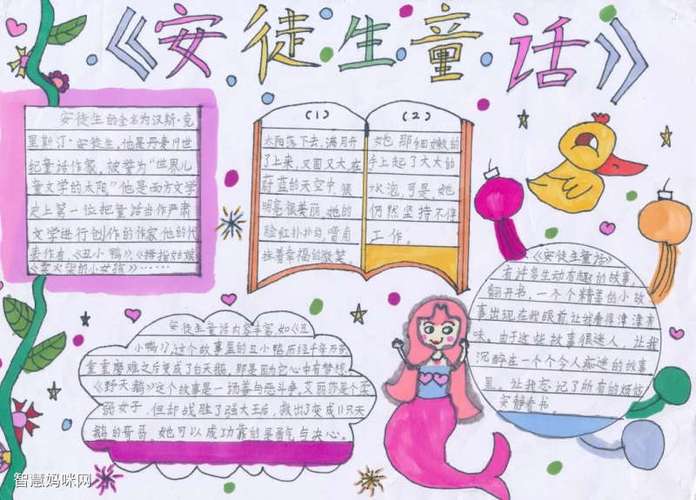 《安徒生童话》
安徒生的全名为汉斯·克
里斯汀·安徒生,他是丹麦19世
纪童话作家,被誉为"世界儿
童文学的太阳"他是西方文学
史上第一位把童话当作严肃
文学进行创作的作家他的代
表作有《丑小鸭》《拇指姑娘》
《卖火柴的小女孩》……
(1)
太阳落下去,满月升
了上来,又圆又大在
蔚蓝的天空中,很
明亮很美丽,她的
脸红扑扑的,嘴角
挂着幸福的微笑
(2)
她那细嫩的
手上起了大大的
水泡,可是她
仍然坚持不停
工作。
《安徒生童话》
有许多生动有趣的故事,
翻开书,一个个精美的小故
事出现在我眼前,让我看得津津有
味。由于这些故事很迷人,让我
沉醉在一个个令人痴迷的故事
里,让我忘记了所有的烦恼
安静看书。
安徒生童话内容丰富,如《丑
小鸭》,这个故事里的丑小鸭历经千辛万苦
重重磨难之后变成了白天鹅,那是因为它心中有梦想
《野天鹅》这个故事是一场善与恶斗争,艾丽莎是个柔
弱女子,但却战胜了强大王后,救出了变成11只天
鹅的哥哥。她可以成功靠的是勇气与决心。
智慧妈咪网